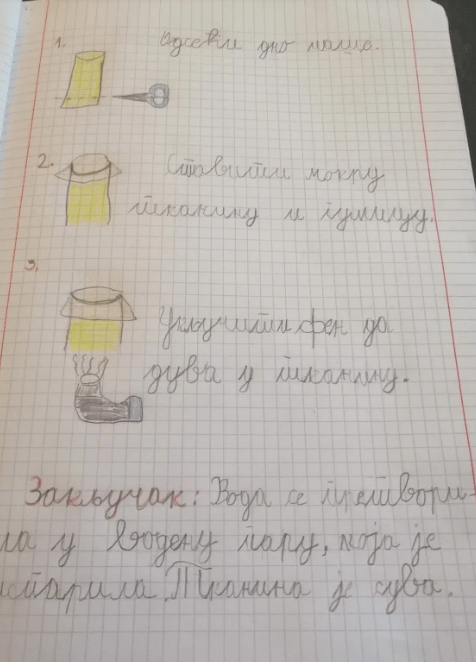 1. Одсећи дно чаше.
2. Ставити мокру
тканину и гумицу.
3.
Укључити фен да
дува у тканину.
Закључак: Вода се претвори-
ла у водену пару, која је
испарила. Тканина је сува.